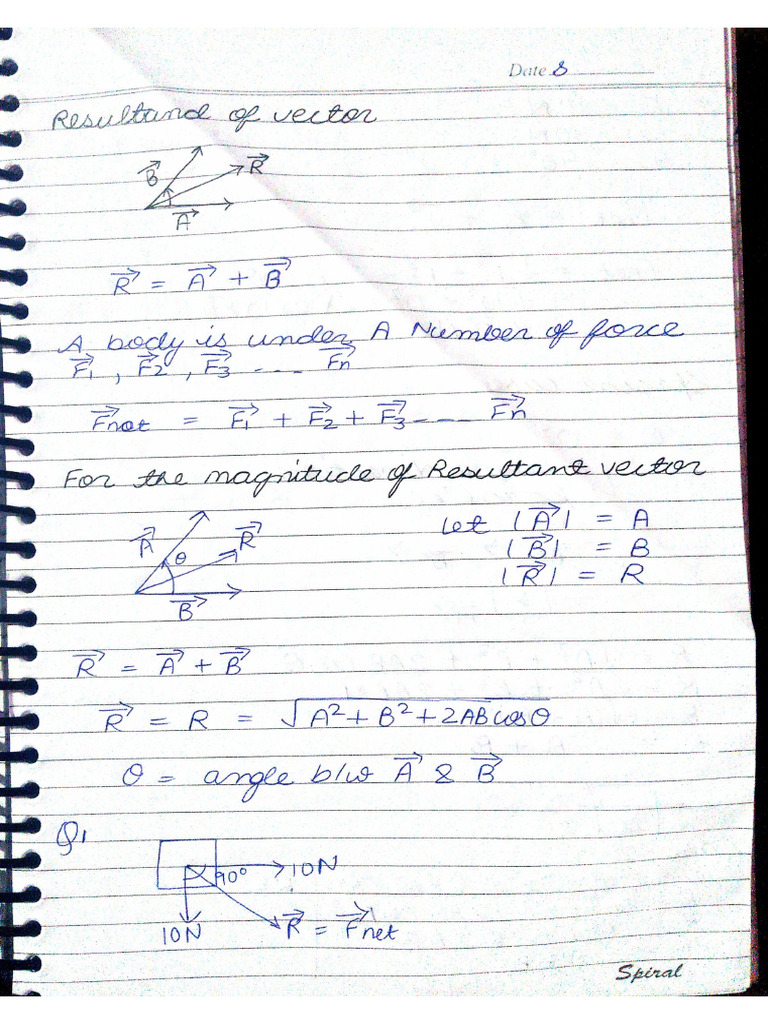 Date 8
Resultand of vector
B⃗ R⃗
A⃗
R⃗ = A⃗ + B⃗
A body is under A Number of force
F⃗1 , F⃗2 , F⃗3 ---- F⃗n
F⃗net = F⃗1 + F⃗2 + F⃗3 ---- F⃗n
For the magnitude of Resultant vector
A⃗ θ R⃗ Let |A⃗| = A
|B⃗| = B
B⃗ |R⃗| = R
R⃗ = A⃗ + B⃗
R⃗ = R = √A²+B²+2ABcosθ
θ = angle b/w A⃗ & B⃗
Q1
90° 10N
10N R⃗ = F⃗net
Spiral